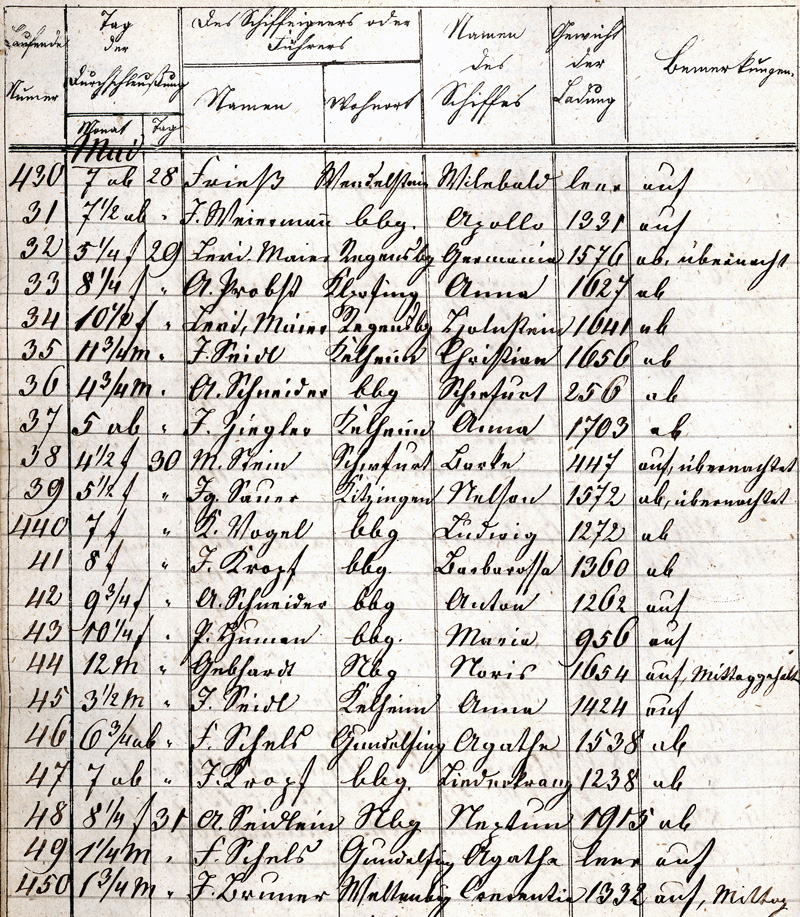 Laufende Numer | Tag der Durchschleußung | Des Schiffeigners oder Führers | Namen des Schiffes | Gewicht der Ladung | Bemerkungen.
Monat | Tag | Namen | Wohnort
Mai
430 7 ab 28 Frieß Wendelstein Wilebald leer auf
31 7 1/2 ab " J. Weiermann bbg. Apollo 1331 auf
32 5 1/4 f 29 Levi. Maier Regensbg Germania 1576 ab, übernacht
33 8 1/4 f " A. Probst Anna 1627 ab
34 10 1/2 f " Levi, Maier Regensbg Holnstein 1641 ab
35 11 3/4 m " J. Seidl Kelheim Christian 1656 ab
36 4 3/4 m " A. Schneider bbg Schwfurt 256 ab
37 5 ab " J. Ziegler Kelheim Anna 1703 ab
38 4 1/2 f 30 M. Stein Schwfurt Barke 447 auf, übernachtet
39 5 1/2 f " Jg. Sauer Kitzingen Nelson 1572 ab, übernachtet
440 7 f " K. Vogel bbg Ludwig 1272 ab
41 8 f " J. Kropf bbg. Barbarossa 1360 ab
42 9 3/4 f " A. Schneider bbg Anton 1262 auf
43 10 1/4 f " P. Human bbg. Maria 956 auf
44 12 m " Gebhardt Nbg Noris 1654 auf, Mittaggehalt
45 3 1/2 m " J. Seidl Kelheim Anna 1424 auf
46 6 3/4 ab " F. Schels Gundelfing Agathe 1538 ab
47 7 ab " J. Kropf bbg. Liederkranz 1238 ab
48 8 1/4 f 31 A. Seidlein Nbg Neptun 1915 ab
49 1 1/4 m " F. Schels Gundelfing Agathe leer auf
450 1 3/4 m " J. Bruner Weltenbg Crescentia 1332 auf, Mittag